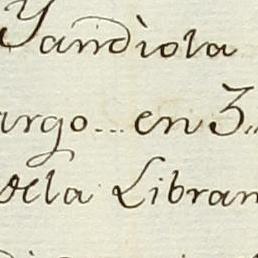 Yandiola
argo... en 3,,
dela Libran